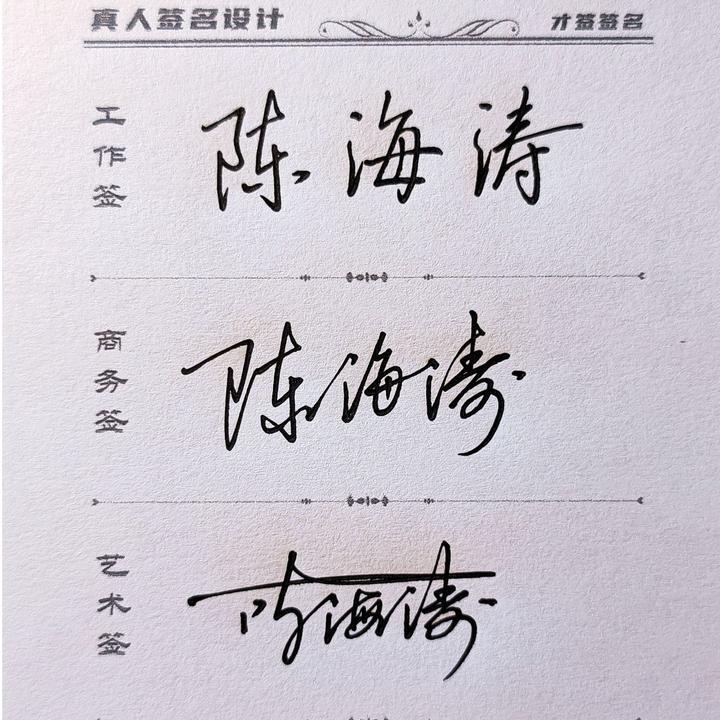 真人签名设计 才签签名
工作签
陈海涛
商务签
陈海涛
艺术签
陈海涛